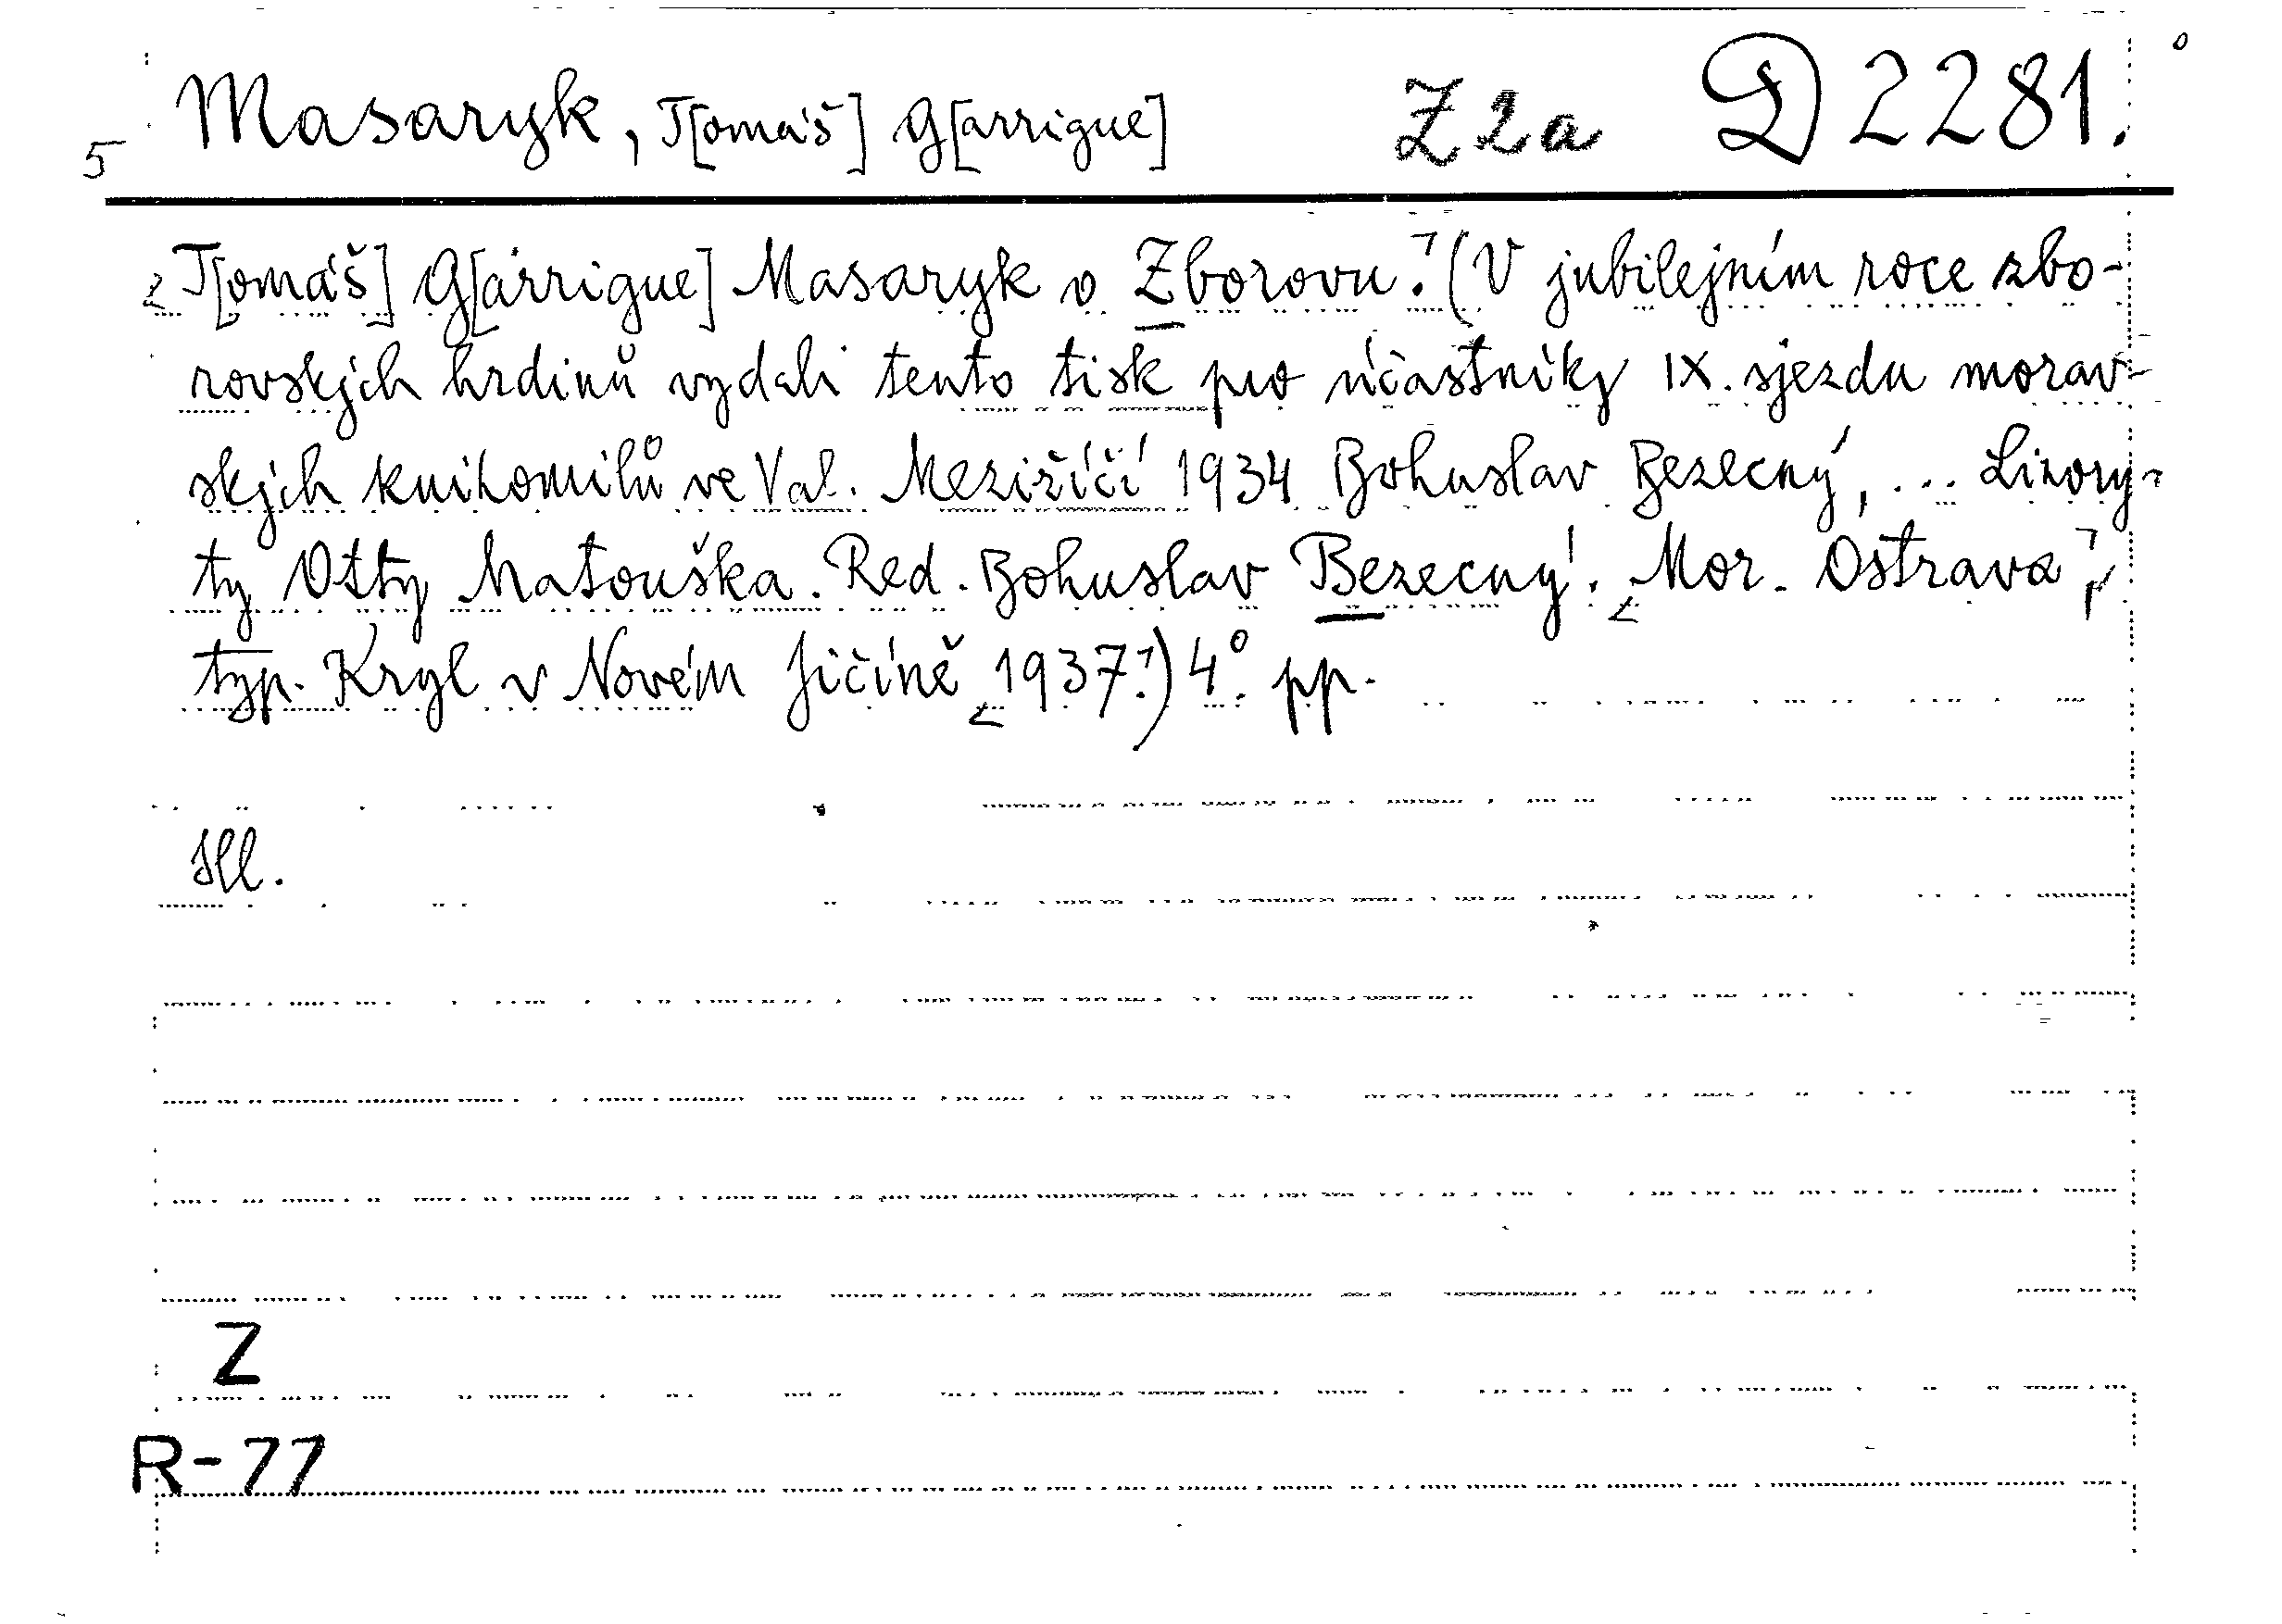 Masaryk, T[omáš] G[arrigue] Z 2a D 2281.
5
T[omáš] G[arrigue] Masaryk o Zborovu. (V jubilejním roce zbo-
rovských hrdinů vydali tento tisk pro účastníky IX. sjezdu morav-
ských knihomilů ve Val. Meziříčí 1934 Bohuslav Bezecný, ... Linory-
ty Otty Matouška. Red. Bohuslav Bezecný. Mor. Ostrava,
typ. Kryl v Novém Jičíně 1937.) 4°. pp.
Ill.
Z
R-77